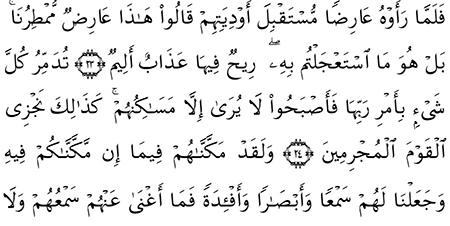 فَلَمَّا رَأَوْهُ عَارِضًا مُّسْتَقْبِلَ أَوْدِيَتِهِمْ قَالُوا۟ هَـٰذَا عَارِضٌ مُّمْطِرُنَا ۚ
بَلْ هُوَ مَا ٱسْتَعْجَلْتُم بِهِۦ ۖ رِيحٌ فِيهَا عَذَابٌ أَلِيمٌ ﴿٢٣﴾ تُدَمِّرُ كُلَّ
شَىْءٍۭ بِأَمْرِ رَبِّهَا فَأَصْبَحُوا۟ لَا يُرَىٰٓ إِلَّا مَسَـٰكِنُهُمْ ۚ كَذَٰلِكَ نَجْزِى
ٱلْقَوْمَ ٱلْمُجْرِمِينَ ﴿٢٤﴾ وَلَقَدْ مَكَّنَّـٰهُمْ فِيمَآ إِن مَّكَّنَّـٰكُمْ فِيهِ
وَجَعَلْنَا لَهُمْ سَمْعًا وَأَبْصَـٰرًا وَأَفْـِٔدَةً فَمَآ أَغْنَىٰ عَنْهُمْ سَمْعُهُمْ وَلَآ